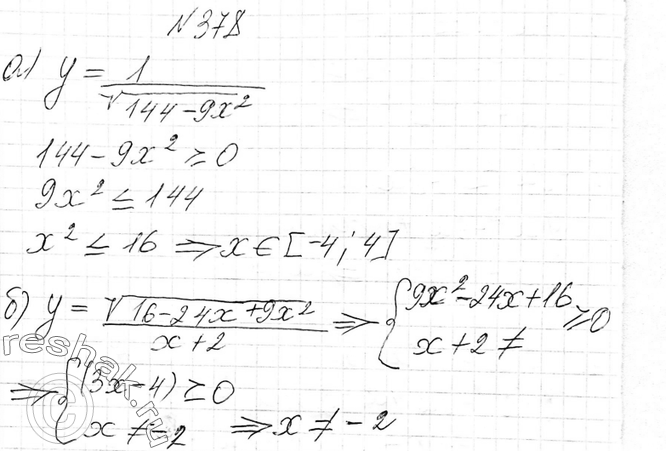 №378
а) y = 1/√(144-9x²)
144-9x² ≥ 0
9x² ≤ 144
x² ≤ 16 ⇒ x ∈ [-4; 4]
б) y = √(16-24x+9x²)/(x+2) ⇒ { 9x²-24x+16 ≥ 0
x+2 ≠
⇒ { (3x-4) ≥ 0
x ≠ -2 ⇒ x ≠ -2
reshak.ru